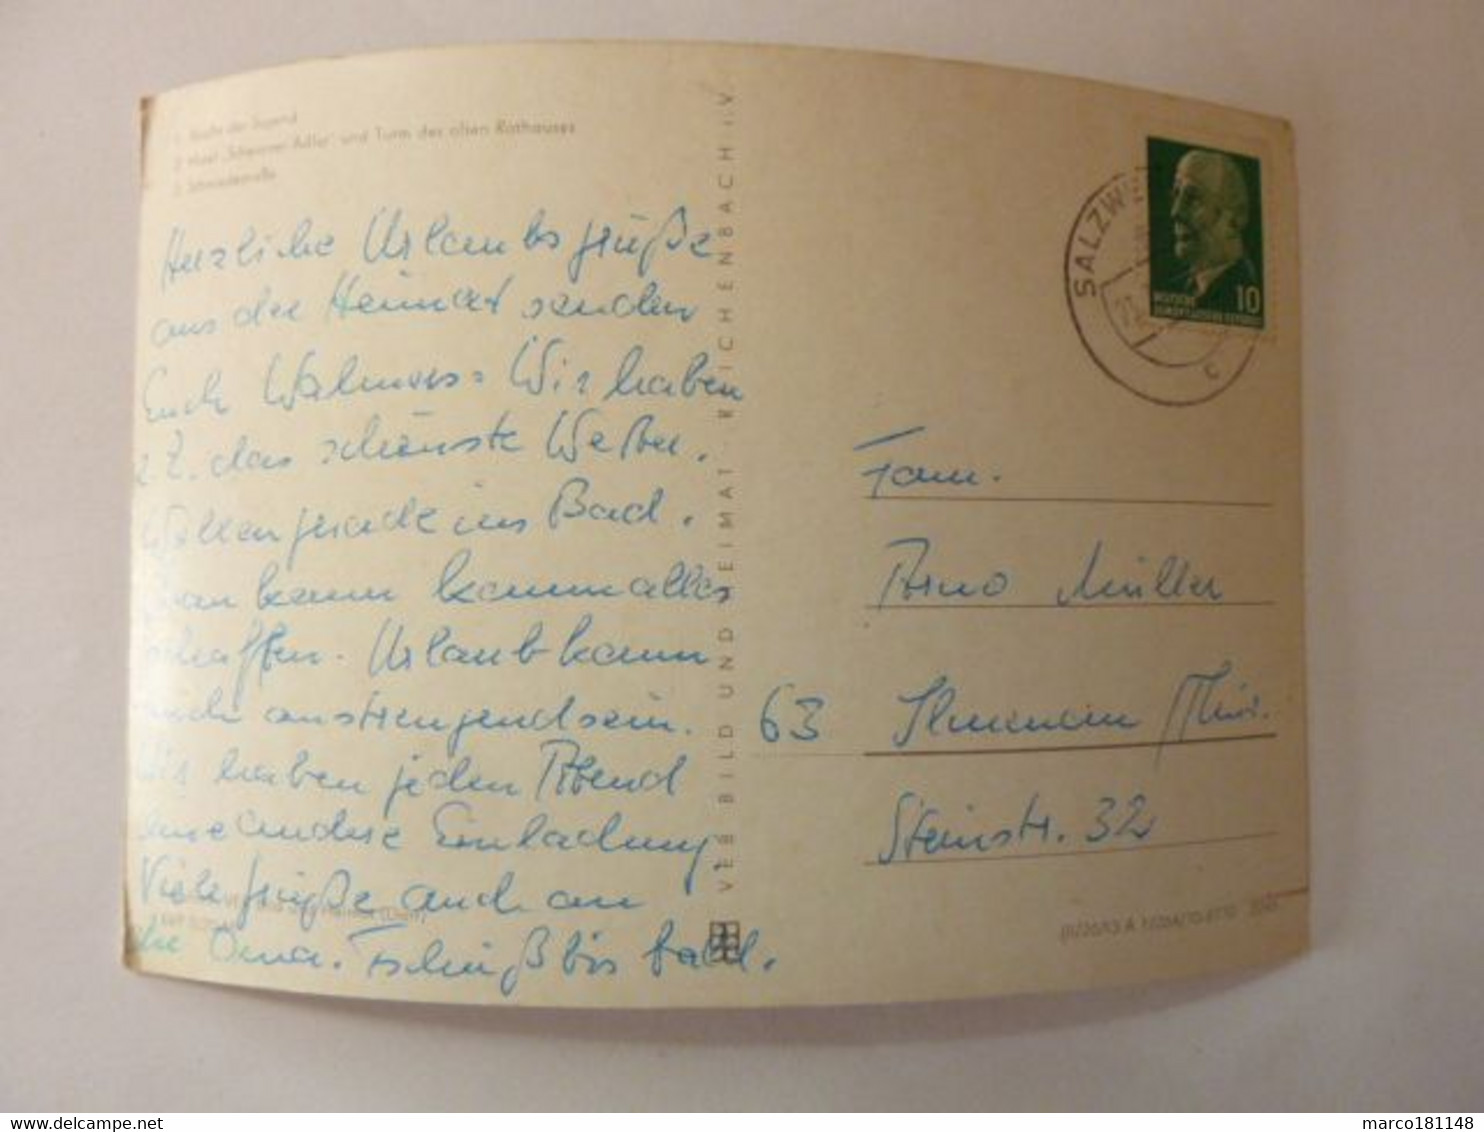 1 Straße der Jugend
2 Hotel „Schwarzer Adler" und Turm des alten Rathauses
3 Schmiedestraße
Herzliche Urlaubsgrüße
aus der Heimat senden
Euch Walmers. Wir haben
z. Z. das schönste Wetter.
Wollen gerade ins Bad.
Man kann kaum alles
schaffen. Urlaub kann
auch anstrengend sein.
Wir haben jeden Abend
eine andere Einladung.
Viele Grüße auch an
die Oma. Tschüß bis bald.
VEB BILD UND HEIMAT · REICHENBACH i. V.
SALZW
DEUTSCHE
DEMOKRATISCHE REPUBLIK
10
c
Fam.
Arno Müller
63 Ilmenau / Thür.
Steinstr. 32
marco181148